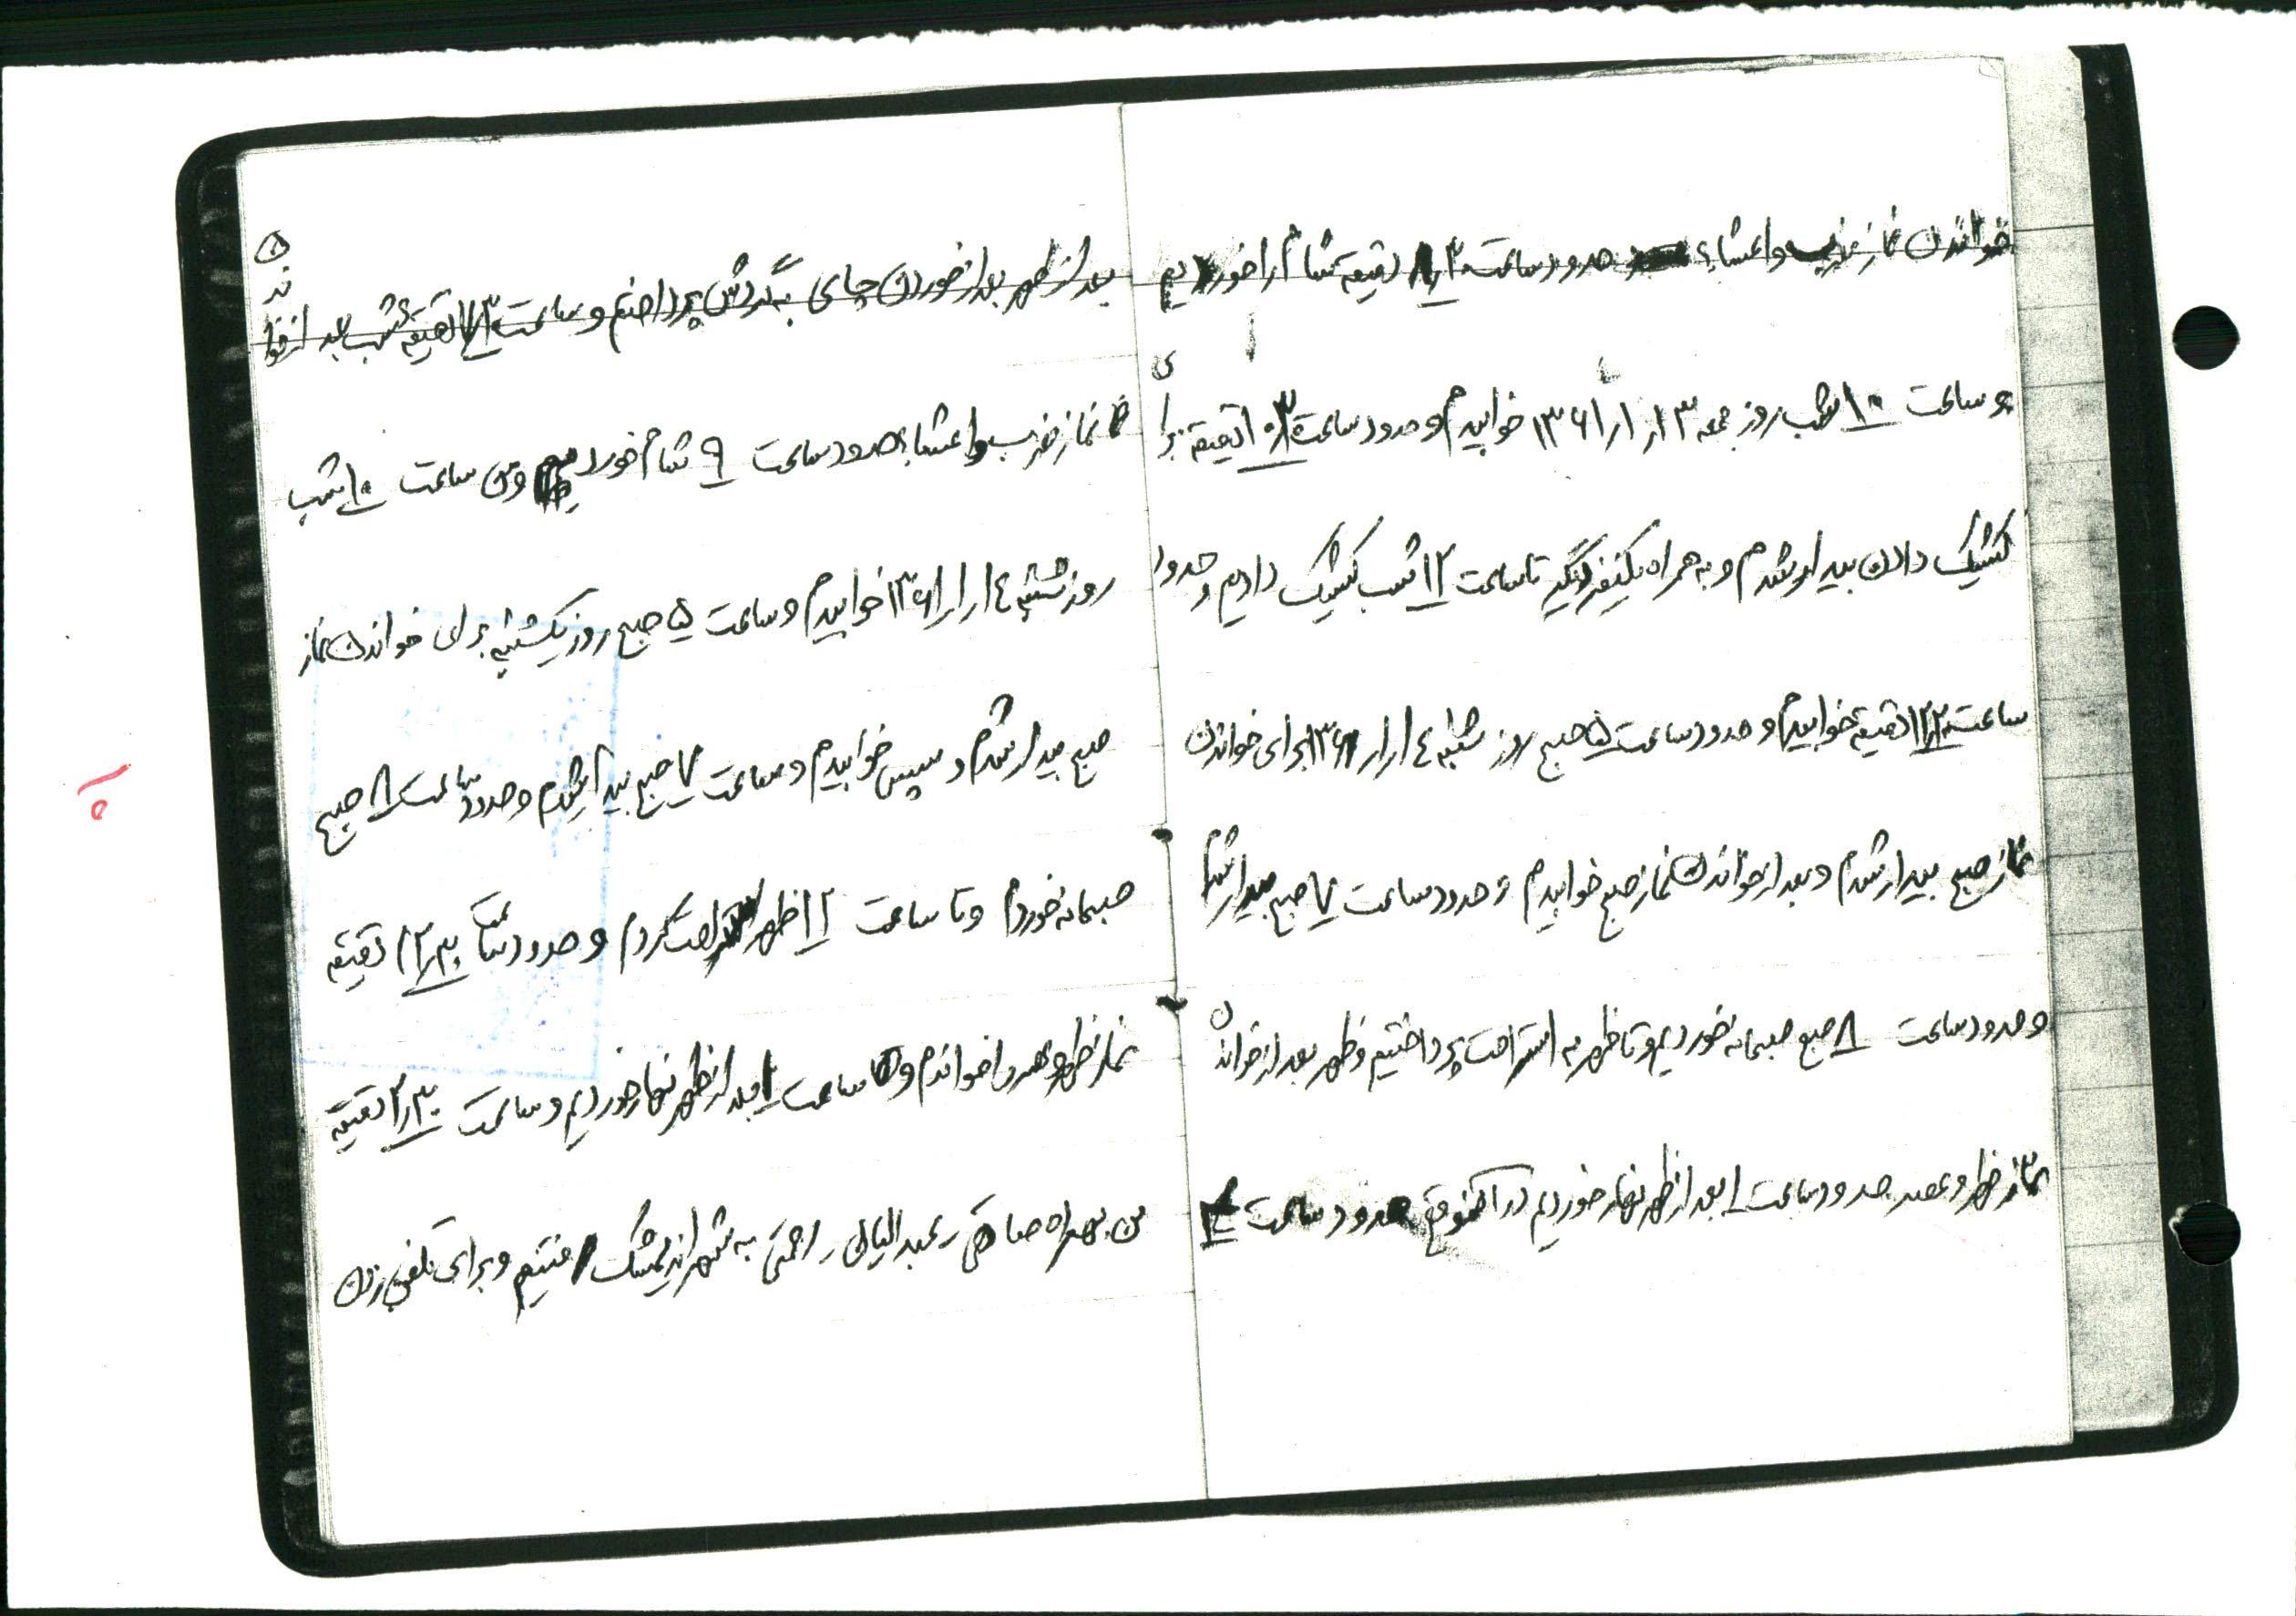 خواندن نماز مغرب و اعشاء حدود ساعت ۸٫۳۰ دقیقه شام را خوردیم
و ساعت ۱۰ شب روز جمعه ۱۳٫۱٫۱۳۶۱ خوابیدم و حدود ساعت ۱۰٫۳۰ دقیقه برای
کشیک دادن بیدار شدم و به همراه یکنفر دیگر تا ساعت ۱۲ شب کشیک دادیم و حدود
ساعت ۱۲٫۲۰ دقیقه خوابیدم و حدود ساعت ۵ صبح روز شنبه ۱۴٫۱٫۱۳۶۱ برای خواندن
نماز صبح بیدار شدم و بعد از خواندن نماز صبح خوابیدم و حدود ساعت ۷ صبح بیدار شدم
و حدود ساعت ۸ صبح صبحانه خوردیم و تا ظهر به استراحت پرداختیم و ظهر بعد از خواندن
نماز ظهر و عصر حدود ساعت ۱ بعد از ظهر نهار خوردیم در آنموقع حدود ساعت ۴
بعد از ظهر بعد از خوردن چای به گردش پرداختم و ساعت ۷٫۳۰ دقیقه شب بعد از خواندن
نماز مغرب و اعشاء حدود ساعت ۹ شام خوردیم و من ساعت ۱۰ شب
روز شنبه ۱۴٫۱٫۱۳۶۱ خوابیدم و ساعت ۵ صبح روز یکشنبه برای خواندن نماز
صبح بیدار شدم و سپس خوابیدم و ساعت ۷ صبح بیدار شدم و حدود ساعت ۸ صبح
صبحانه خوردم و تا ساعت ۱۲ ظهر استراحت کردم و حدود ساعت ۱۲٫۳۰ دقیقه
نماز ظهر و عصر را خواندم و ساعت ۱ بعد از ظهر نهار خوردیم و ساعت ۲٫۳۰ دقیقه
من بهمراه عبدالیالی راحتی به شهر اندیمشک رفتیم و برای تلفن زدن
۱۰